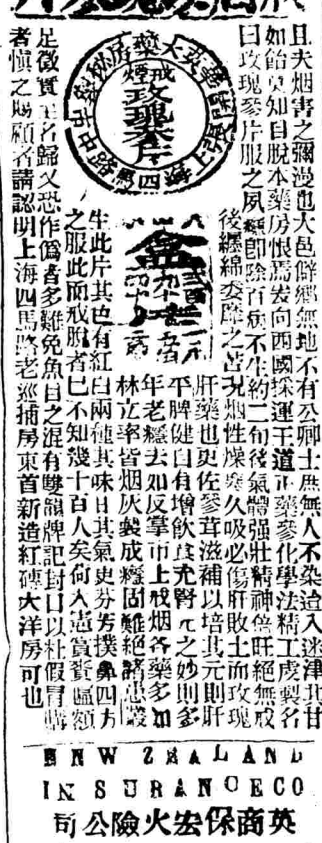 戒煙
玫瑰參片
且夫烟害之彌漫也大邑僻鄉無地不有公卿士庶無人不染迨入迷津其甘
如飴莫知自脫本藥房恨焉爰向西國採運王道正藥參化學法精工虔製名
曰玫瑰參片服之夙癮即除百病不生約二旬後氣體强壯精神倍旺絕無戒
後纏綿委靡之苦況烟性燥寒久吸必傷肝敗土而玫瑰
肝藥也更佐參茸滋補以培其元則肝
平脾健自有增飲食充腎元之妙則多
年老癮去如反掌市上戒烟各藥多如
林立率皆烟灰製成癮固難絕諸患叢
生此片其色有紅白兩種其味甘其氣芬芳撲鼻四方
之服此而戒脫者已不知幾十百人矣憲賞賚匾額
足徵實至名歸又恐作偽者多難免魚目之混有雙龍牌記封口以杜假冒購
者慎之賜顧者請認明上海四馬路老巡捕房東首新造紅磚大洋房可也
NEW ZEALAND
INSURANCE CO
英商保宏火險公司